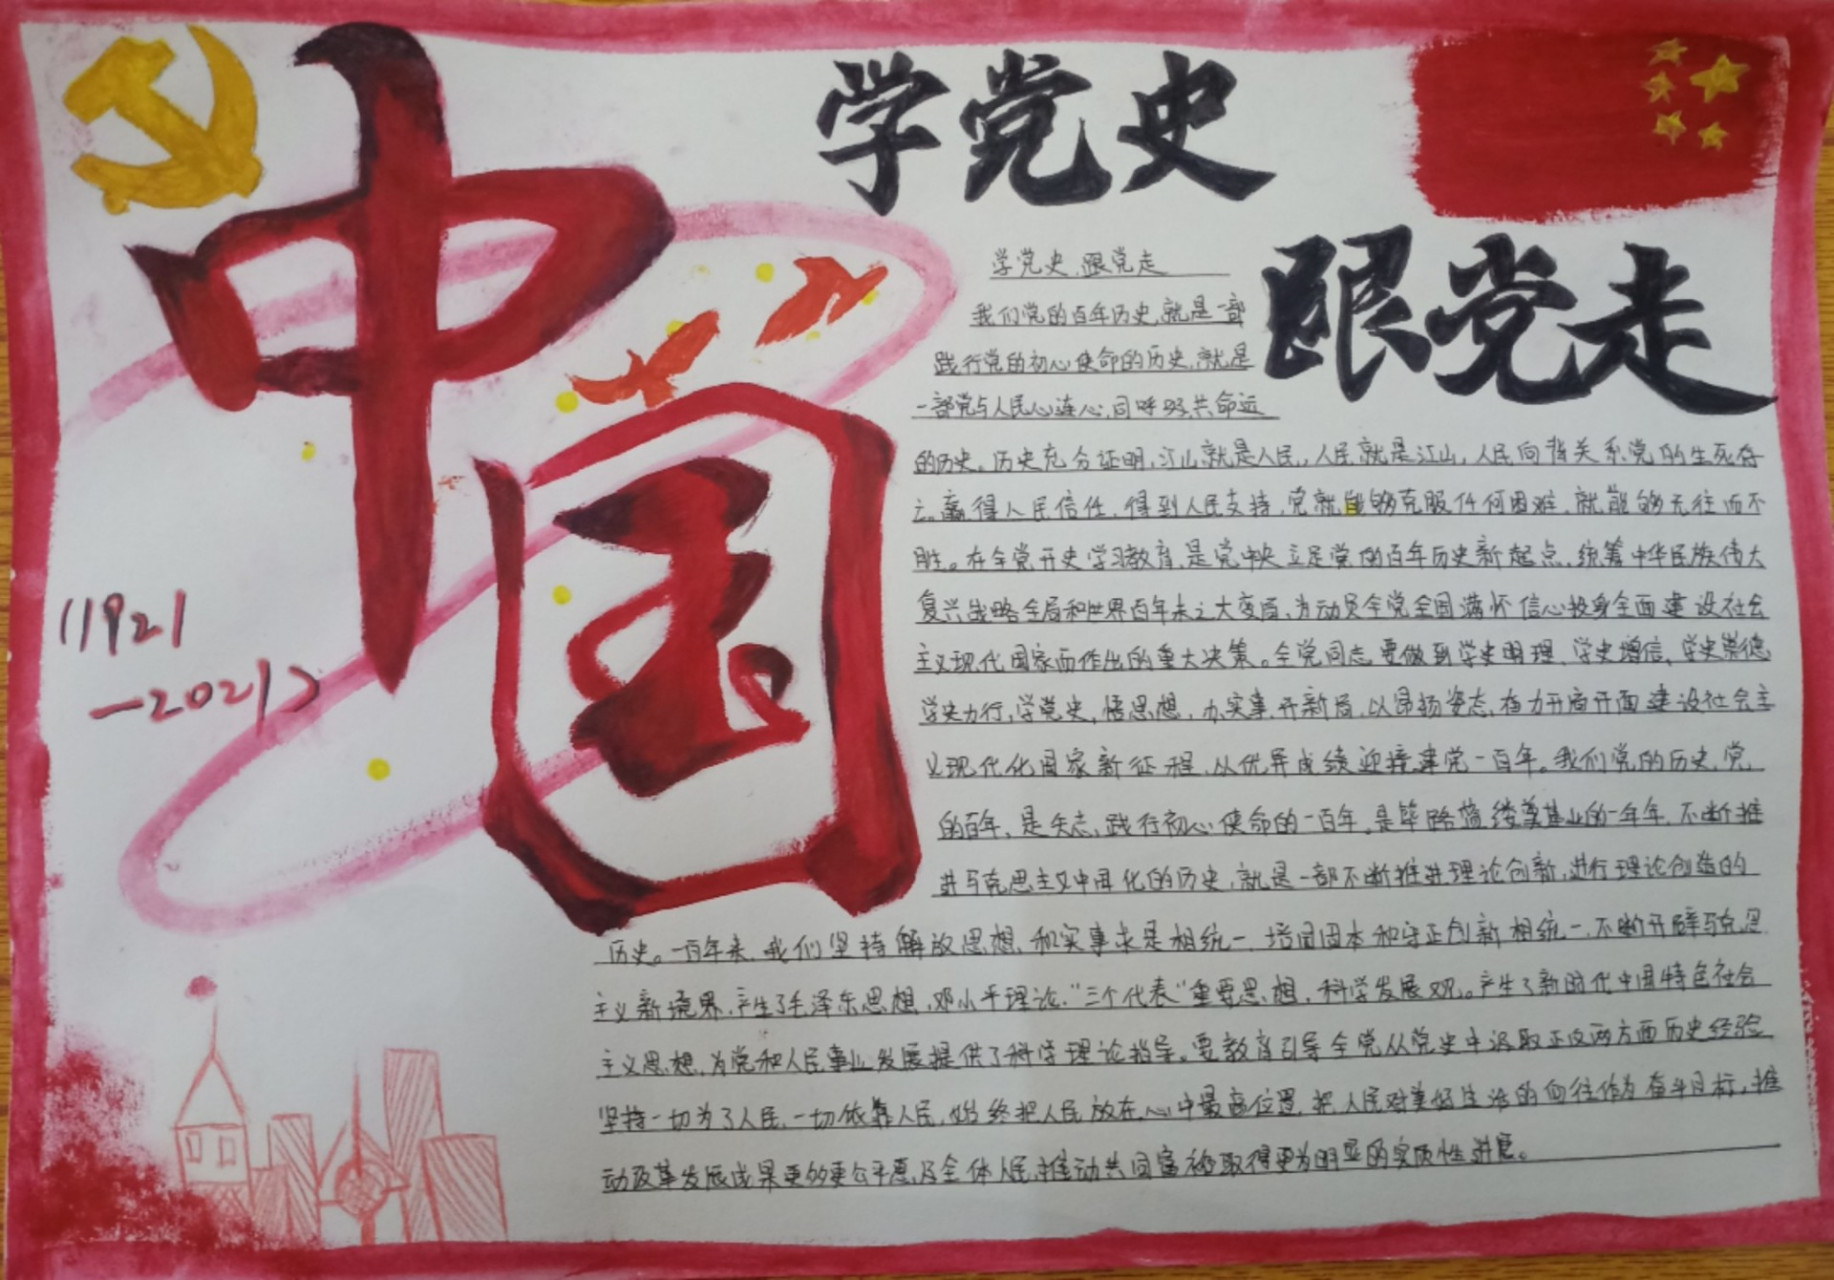 学党史
跟党走
中国
(1921
—2021)
学党史、跟党走
我们党的百年历史,就是一部
践行党的初心使命的历史,就是
一部党与人民心连心,同呼吸、共命运
的历史。历史充分证明,江山就是人民,人民就是江山,人民向背关系党的生死存
亡。赢得人民信任,得到人民支持,党就能够克服任何困难,就能够无往而不
胜。在全党开史学习教育,是党中央立足党的百年历史新起点,统筹中华民族伟大
复兴战略全局和世界百年未之大变局,为动员全党全国满怀信心投身全面建设社会
主义现代国家而作出的重大决策。全党同志要做到学史明理、学史增信、学史崇德
学史力行,学党史,悟思想,办实事,开新局,以昂扬姿态,奋力开启开面建设社会主
义现代化国家新征程,以优异成绩迎接建党一百年。我们党的历史,党
的百年,是矢志,践行初心使命的一百年,是筚路蓝缕奠基业的一年年,不断推
进马克思主义中国化的历史,就是一部不断推进理论创新,进行理论创造的
历史。一百年来,我们坚持解放思想,和实事求是相统一,培固固本和守正创新相统一,不断开辟马克思
主义新境界,产生了毛泽东思想,邓小平理论,“三个代表“重要思想,科学发展观。产生了新时代中国特色社会
主义思想,为党和人民事业发展提供了科学理论指导。要教育引导全党从党史中汲取正反两方面历史经验
坚持一切为了人民,一切依靠人民,始终把人民放在心中最高位置,把人民对美好生活的向往作为奋斗目标,推
动改革发展成果更多更公平惠及全体人民,推动共同富裕取得更为明显的实质性进展。